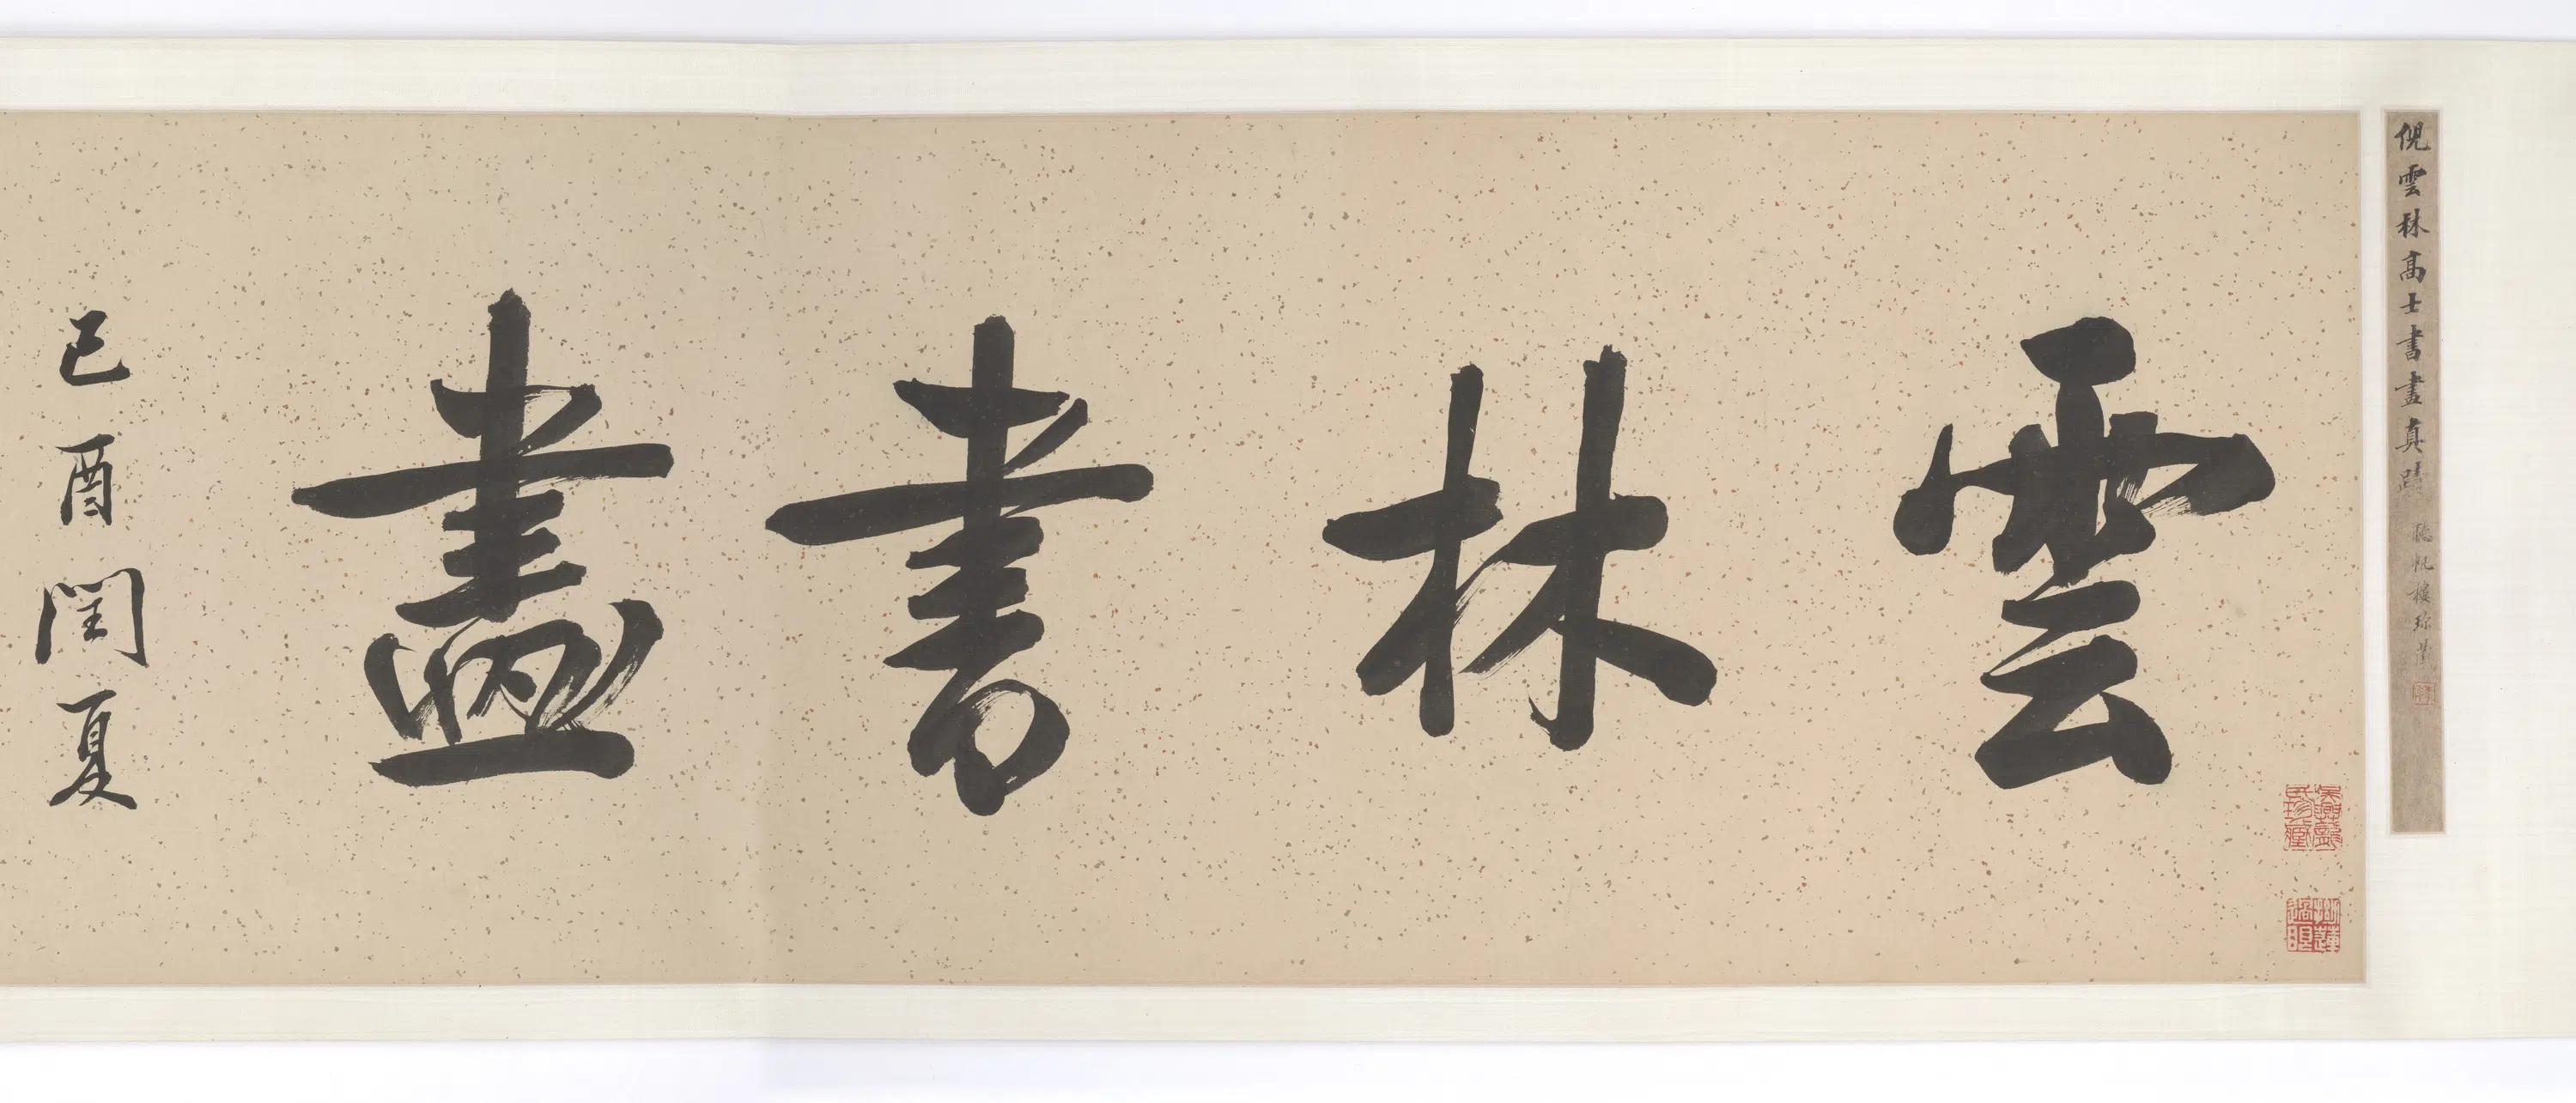 倪雲林高士書畫真蹟
聽帆樓珍藏
雲林書畫
己酉閏夏